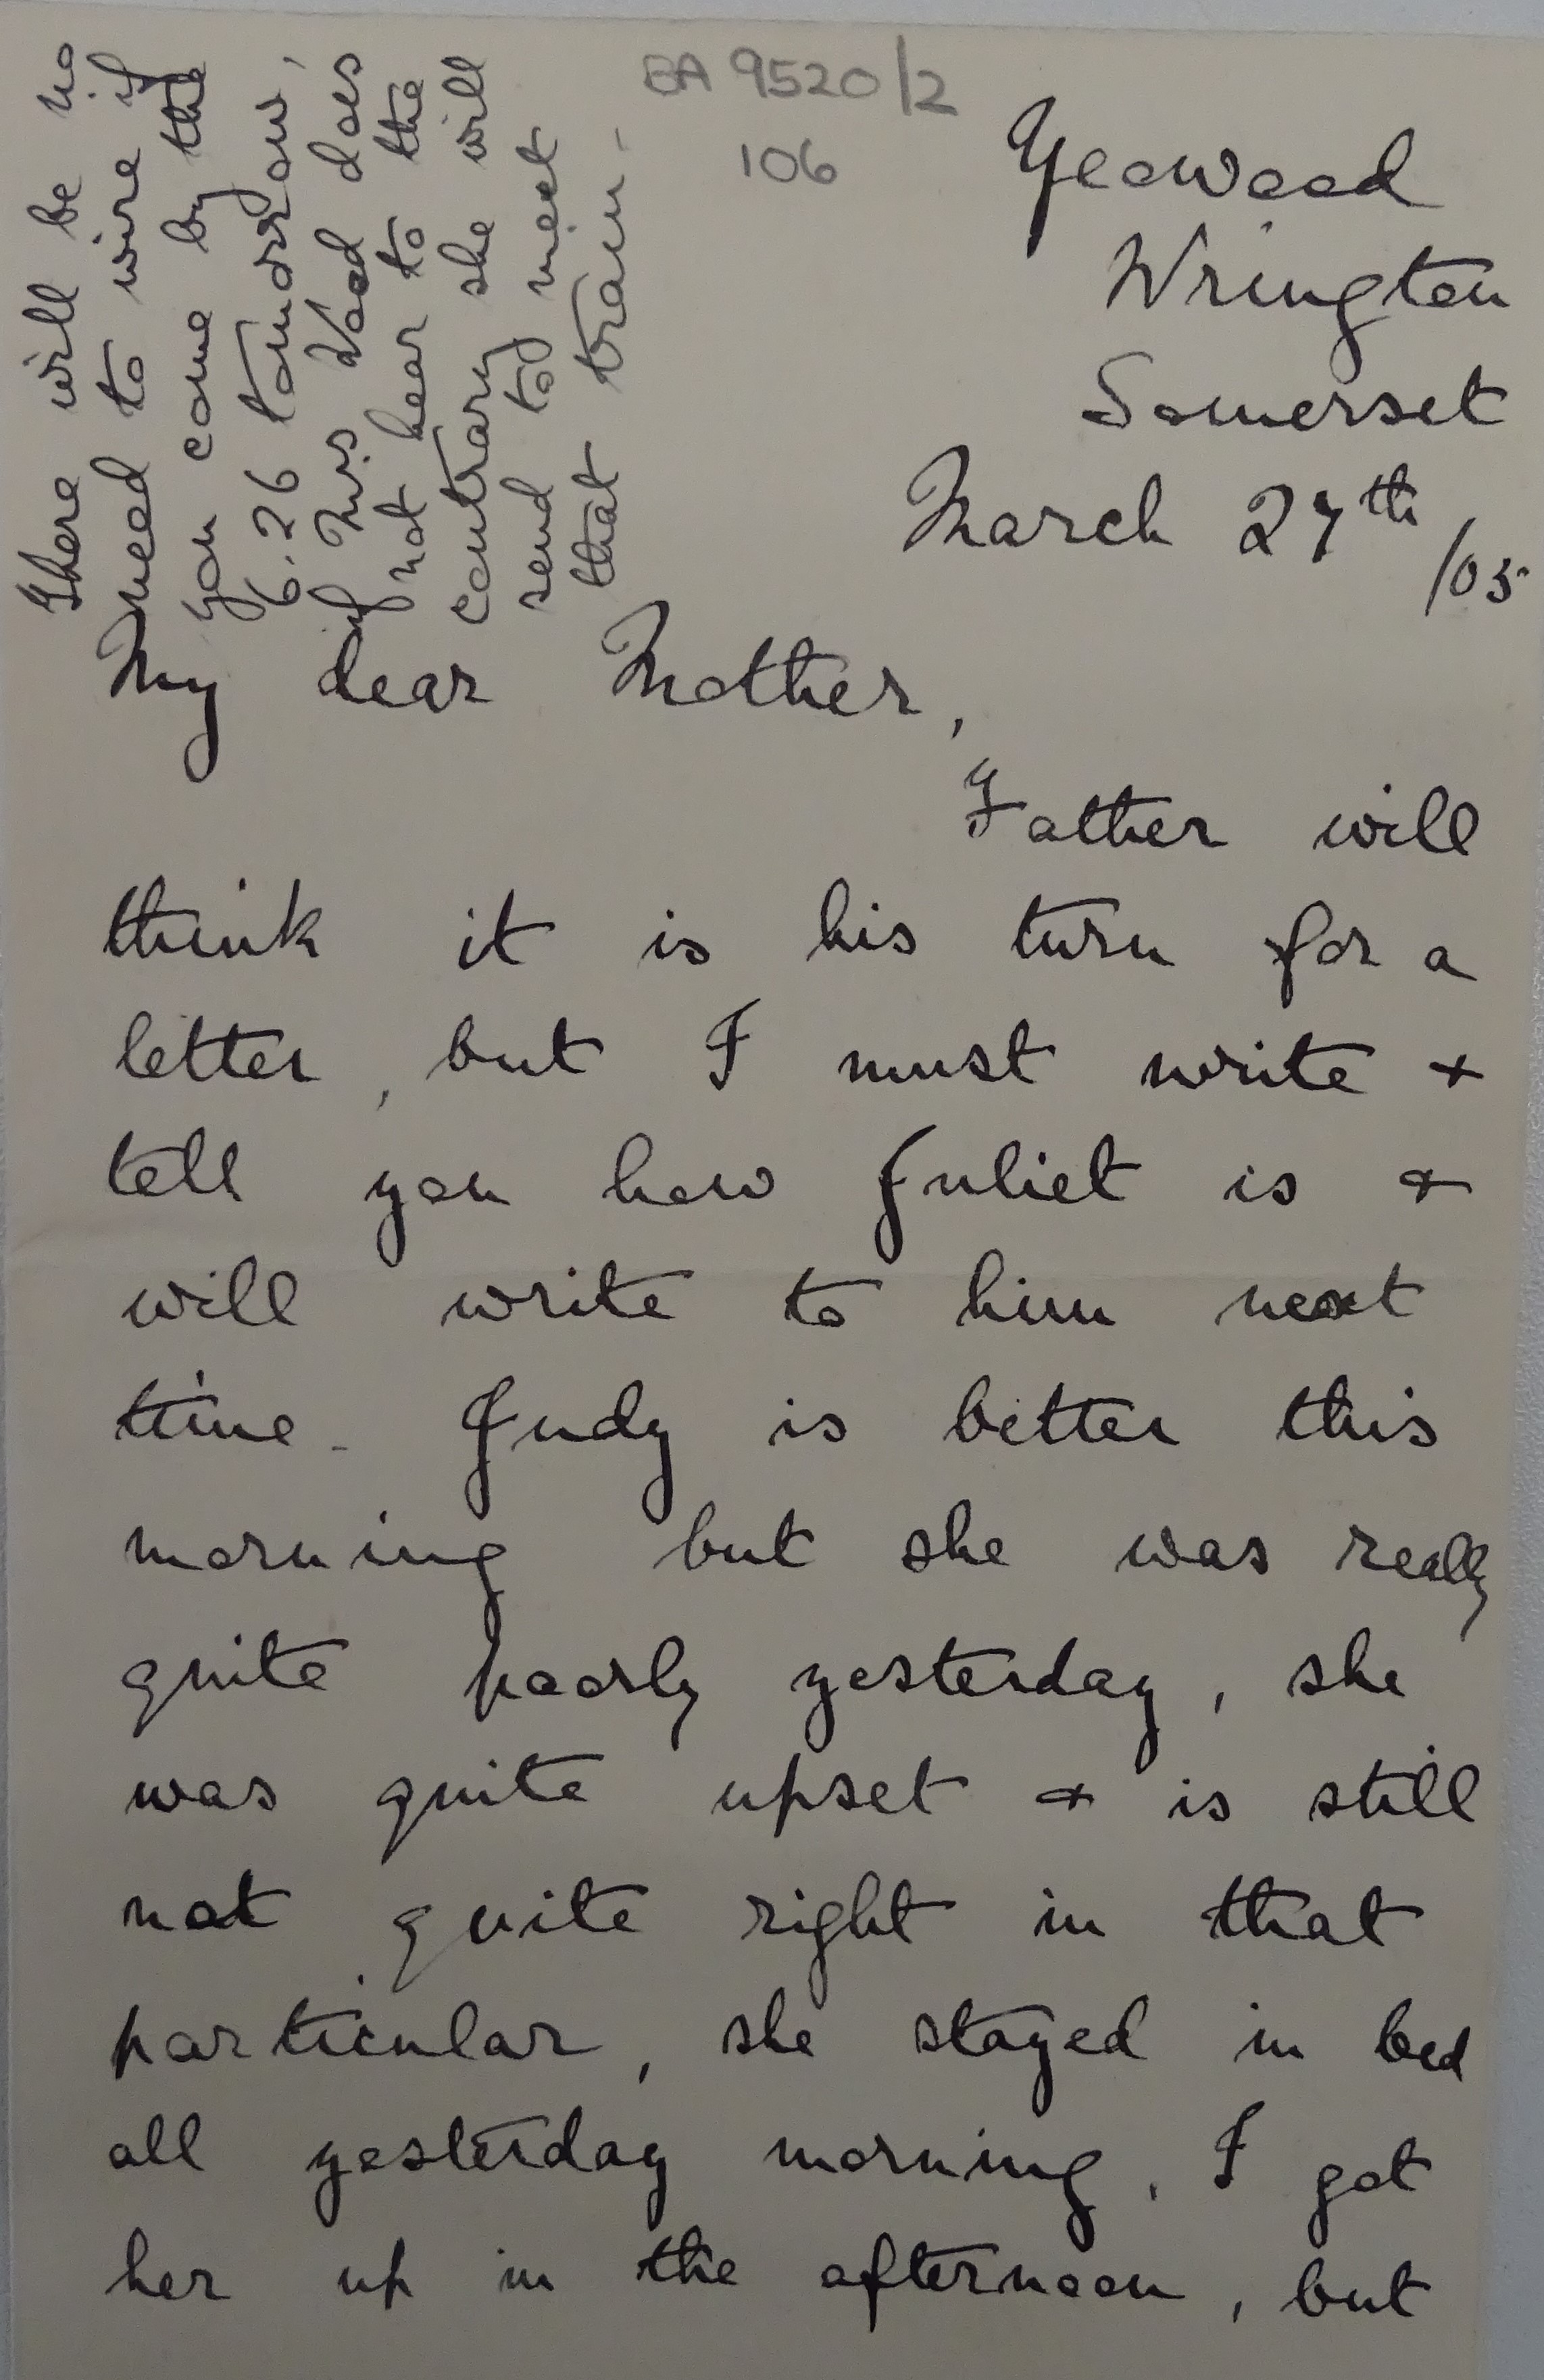 EA 9520/2
106
Yeowood
Wrington
Somerset
March 27th /05
There will be no
need to wire if
you come by the
6.26 tomorrow,
if Mrs Wood does
not hear to the
contrary she will
send to meet
that train.
My dear Mother,
Father will
think it is his turn for a
letter, but I must write +
tell you how Juliet is +
will write to him next
time. Judy is better this
morning but she was really
quite poorly yesterday, she
was quite upset + is still
not quite right in that
particular, she stayed in bed
all yesterday morning, I got
her up in the afternoon, but